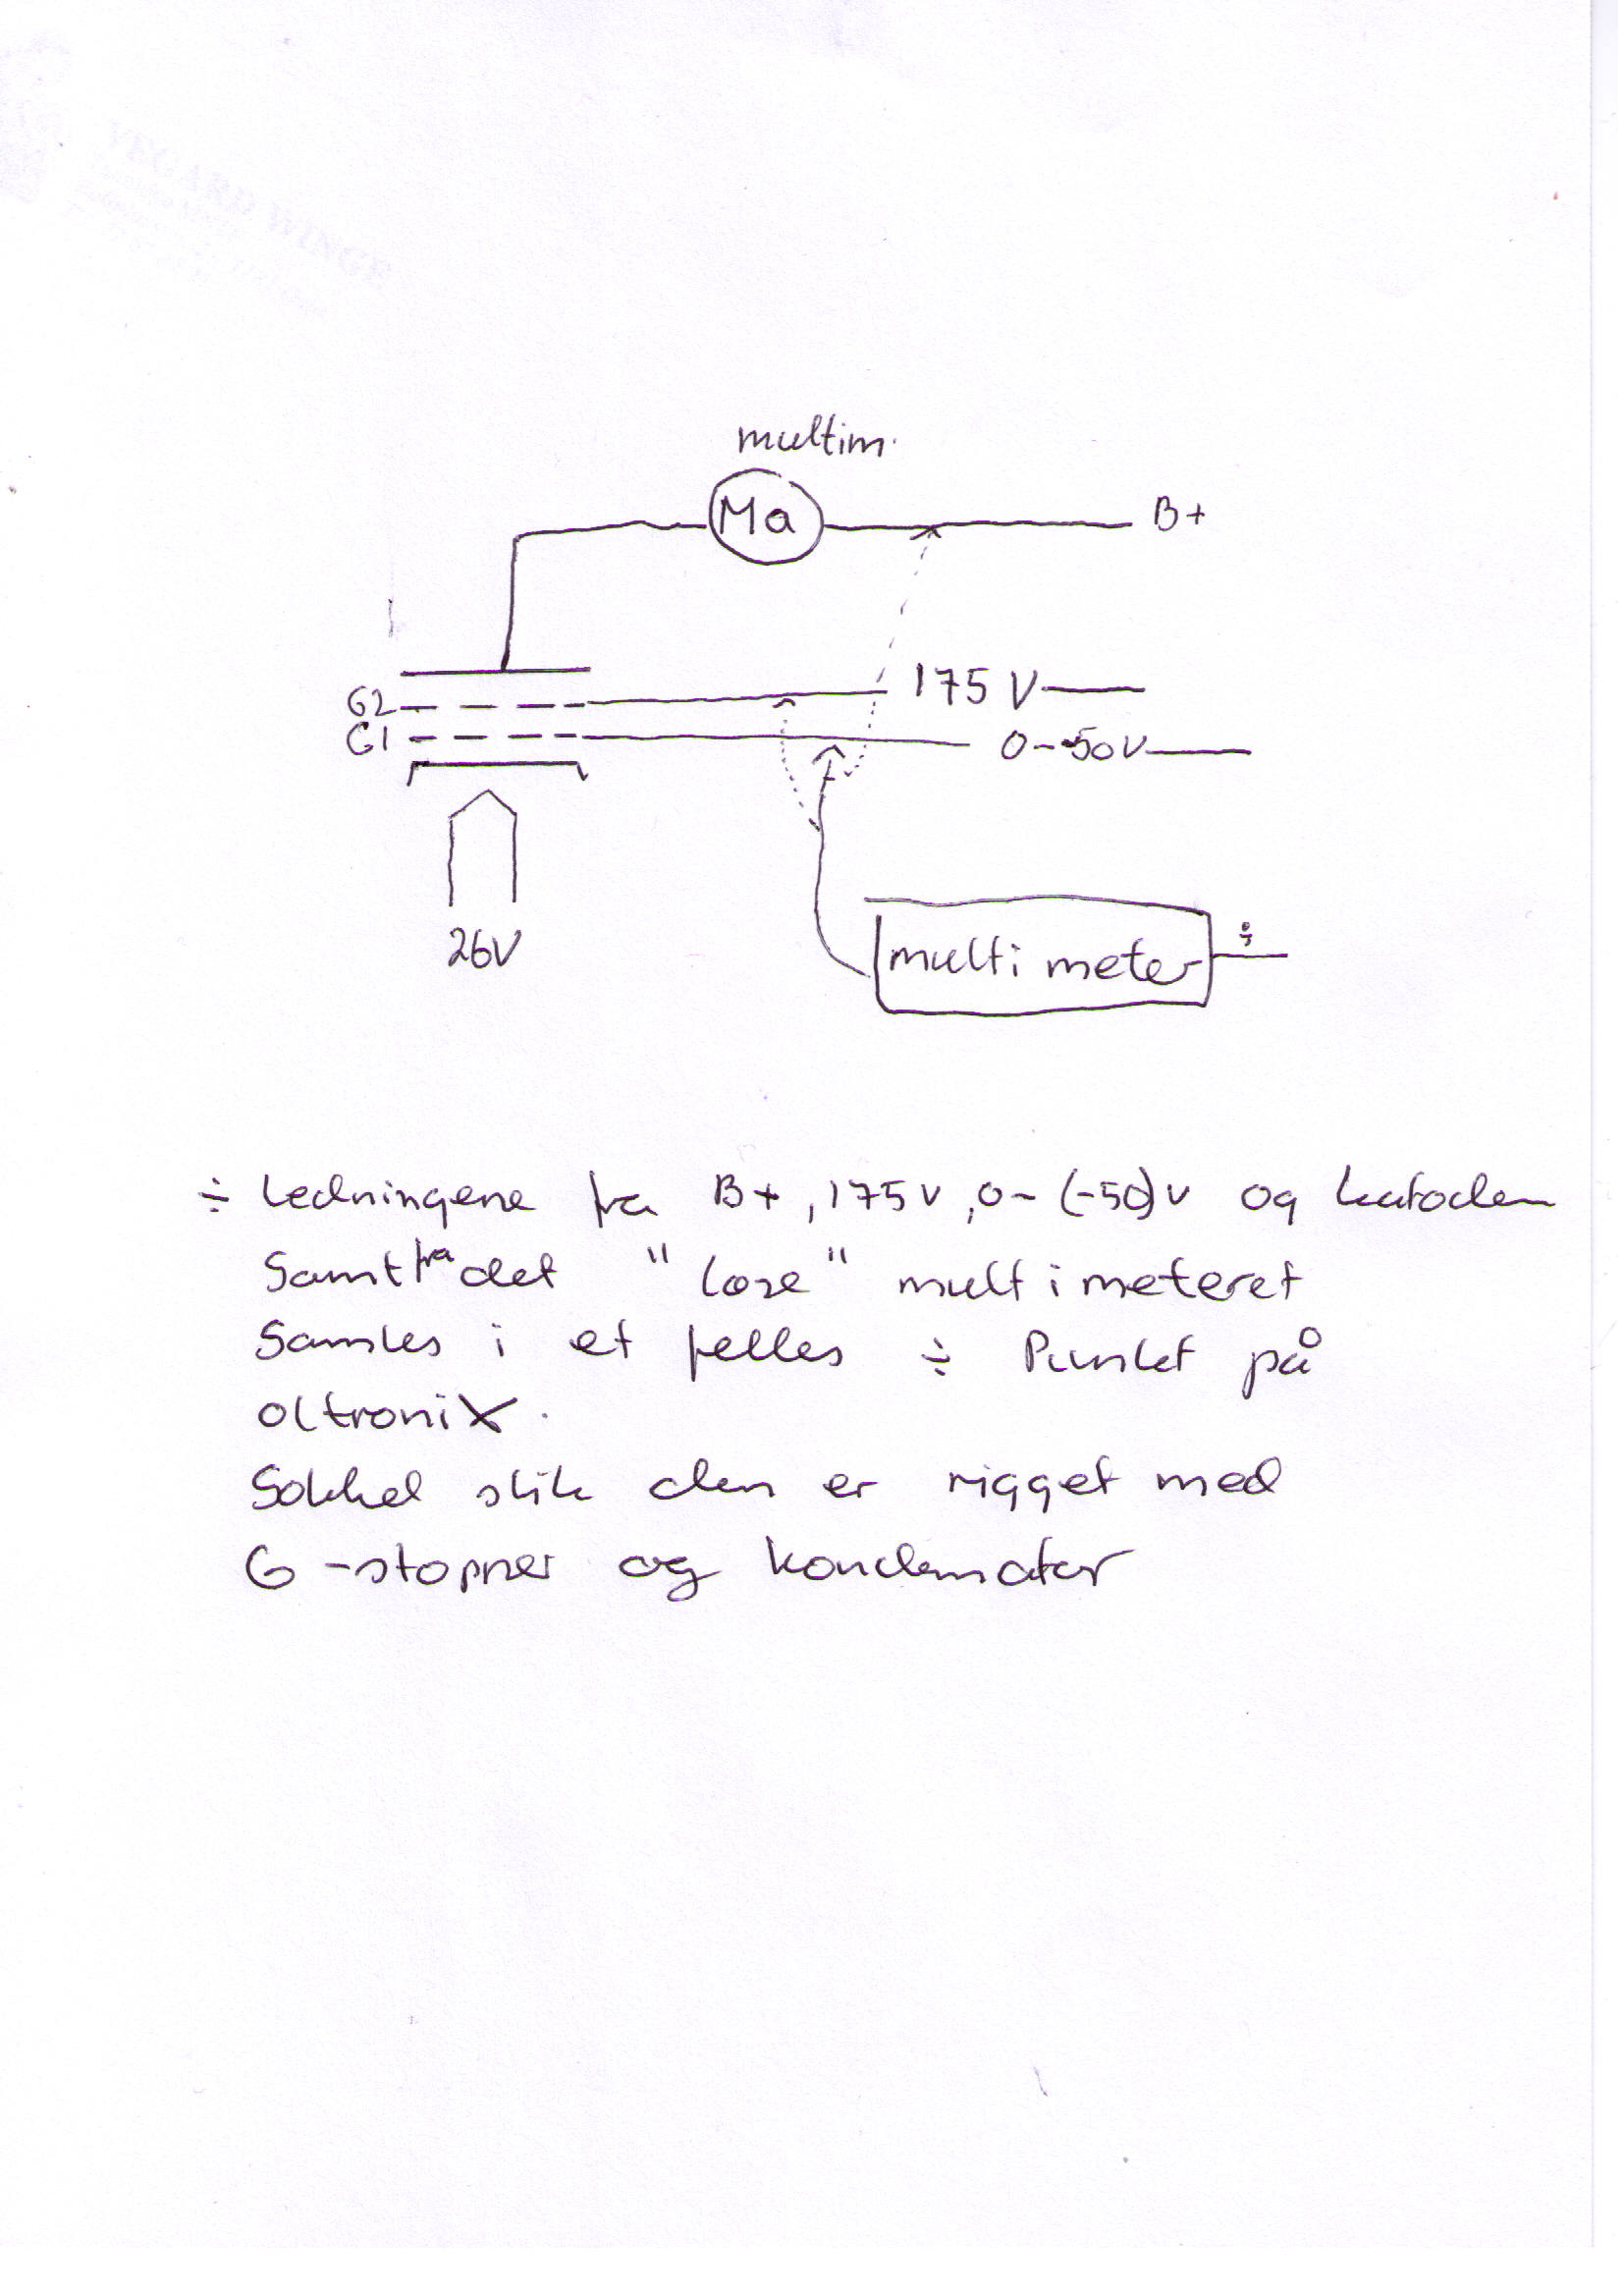 VEGARD WINGE
multim.
Ma
B+
G2
175 V
G1
0--50V
26V
multi meter ÷
÷ Ledningene fra B+, 175V, 0-(-50)V og katoden
Samt fra det "løse" multimeteret
Samles i et felles ÷ Punkt på
oltronix.
Sokkel slik den er rigget med
G-stopper og kondensator